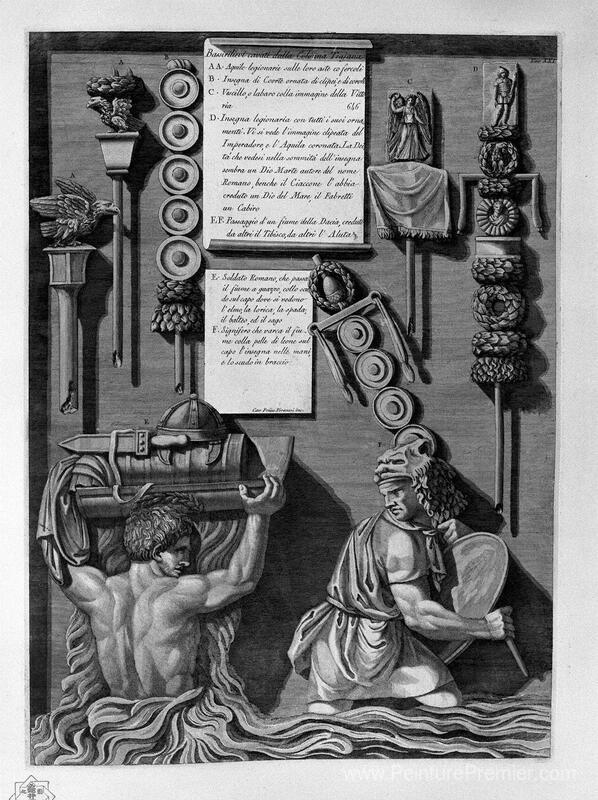 Bassirilievi cavati dalla Colonna Trajana
A A. Aquile legionarie sulle loro aste co fercoli
B. Insegna di Coorte ornata di clipei, e di corone
C. Vessillo, o labaro colla immagine della Vitto
ria 646
D. Insegna legionaria con tutti i suoi orna
menti. Vi si vede l'immagine clipeata del
Imperadore, e l'Aquila coronata. La Dei
tà che vedesi nella sommità dell'insegna
sembra un Dio Marte autore del nome
Romano, benche il Ciaccone l'abbia
creduto un Dio del Mare, il Fabretti
un Cabiro
E.F. Passaggio d'un fiume della Dacia creduto
da altri il Tibisco, da altri l'Aluta
E. Soldato Romano, che passa
il fiume a guazzo, collo scu
do sul capo dove si vedono
l'elmo, la lorica, la spada,
il balteo, ed il sago
F. Signifero che varca il fiu
me colla pelle di leone sul
capo l'insegna nelle mani
e lo scudo in braccio
Cav. Piranesi inc.
A
B
C
D
A
E
F
www.PeinturePremier.com